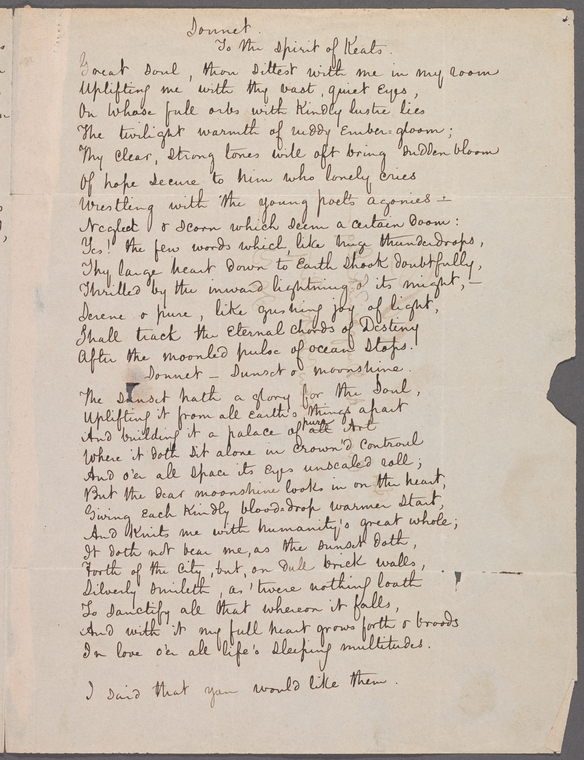 Sonnet.
To the Spirit of Keats.
Great Soul, thou sittest with me in my room
Uplifting me with thy vast, quiet Eyes,
On whose full orbs with Kindly lustre lies
The twilight warmth of ruddy Ember-gloom;
Thy clear, strong tones will oft bring sudden bloom
Of hope secure to him who lonely cries
Wrestling with the young poet's agonies —
Neglect & scorn which seem a certain doom:
Yes! the few words which, like huge thunderdrops,
Thy large heart down to Earth shook doubtfully,
Thrilled by the inward lightning o' its might, —
Serene & pure, like gushing joy of light,
Shall track the Eternal chords of Destiny
After the moonled pulse of ocean stops.
Sonnet — Sunset & moonshine.
The Sunset hath a glory for the Soul,
Uplifting it from all Earth's things apart
And building it a palace of pure all Art
Where it doth sit alone in crown'd controul
And o'er all space its Eyes unscaled roll;
But the dear moonshine looks in on the heart,
Giving Each Kindly blood-drop warmer start,
And Knits me with humanity's great whole;
It doth not bear me, as the sunset doth,
Forth of the City, but, on dull brick walls,
Silverly smileth, as 'twere nothing loath
To sanctify all that whereon it falls,
And with it my full heart grows forth & broods
In love o'er all life's sleeping multitudes.
I said that you would like them.